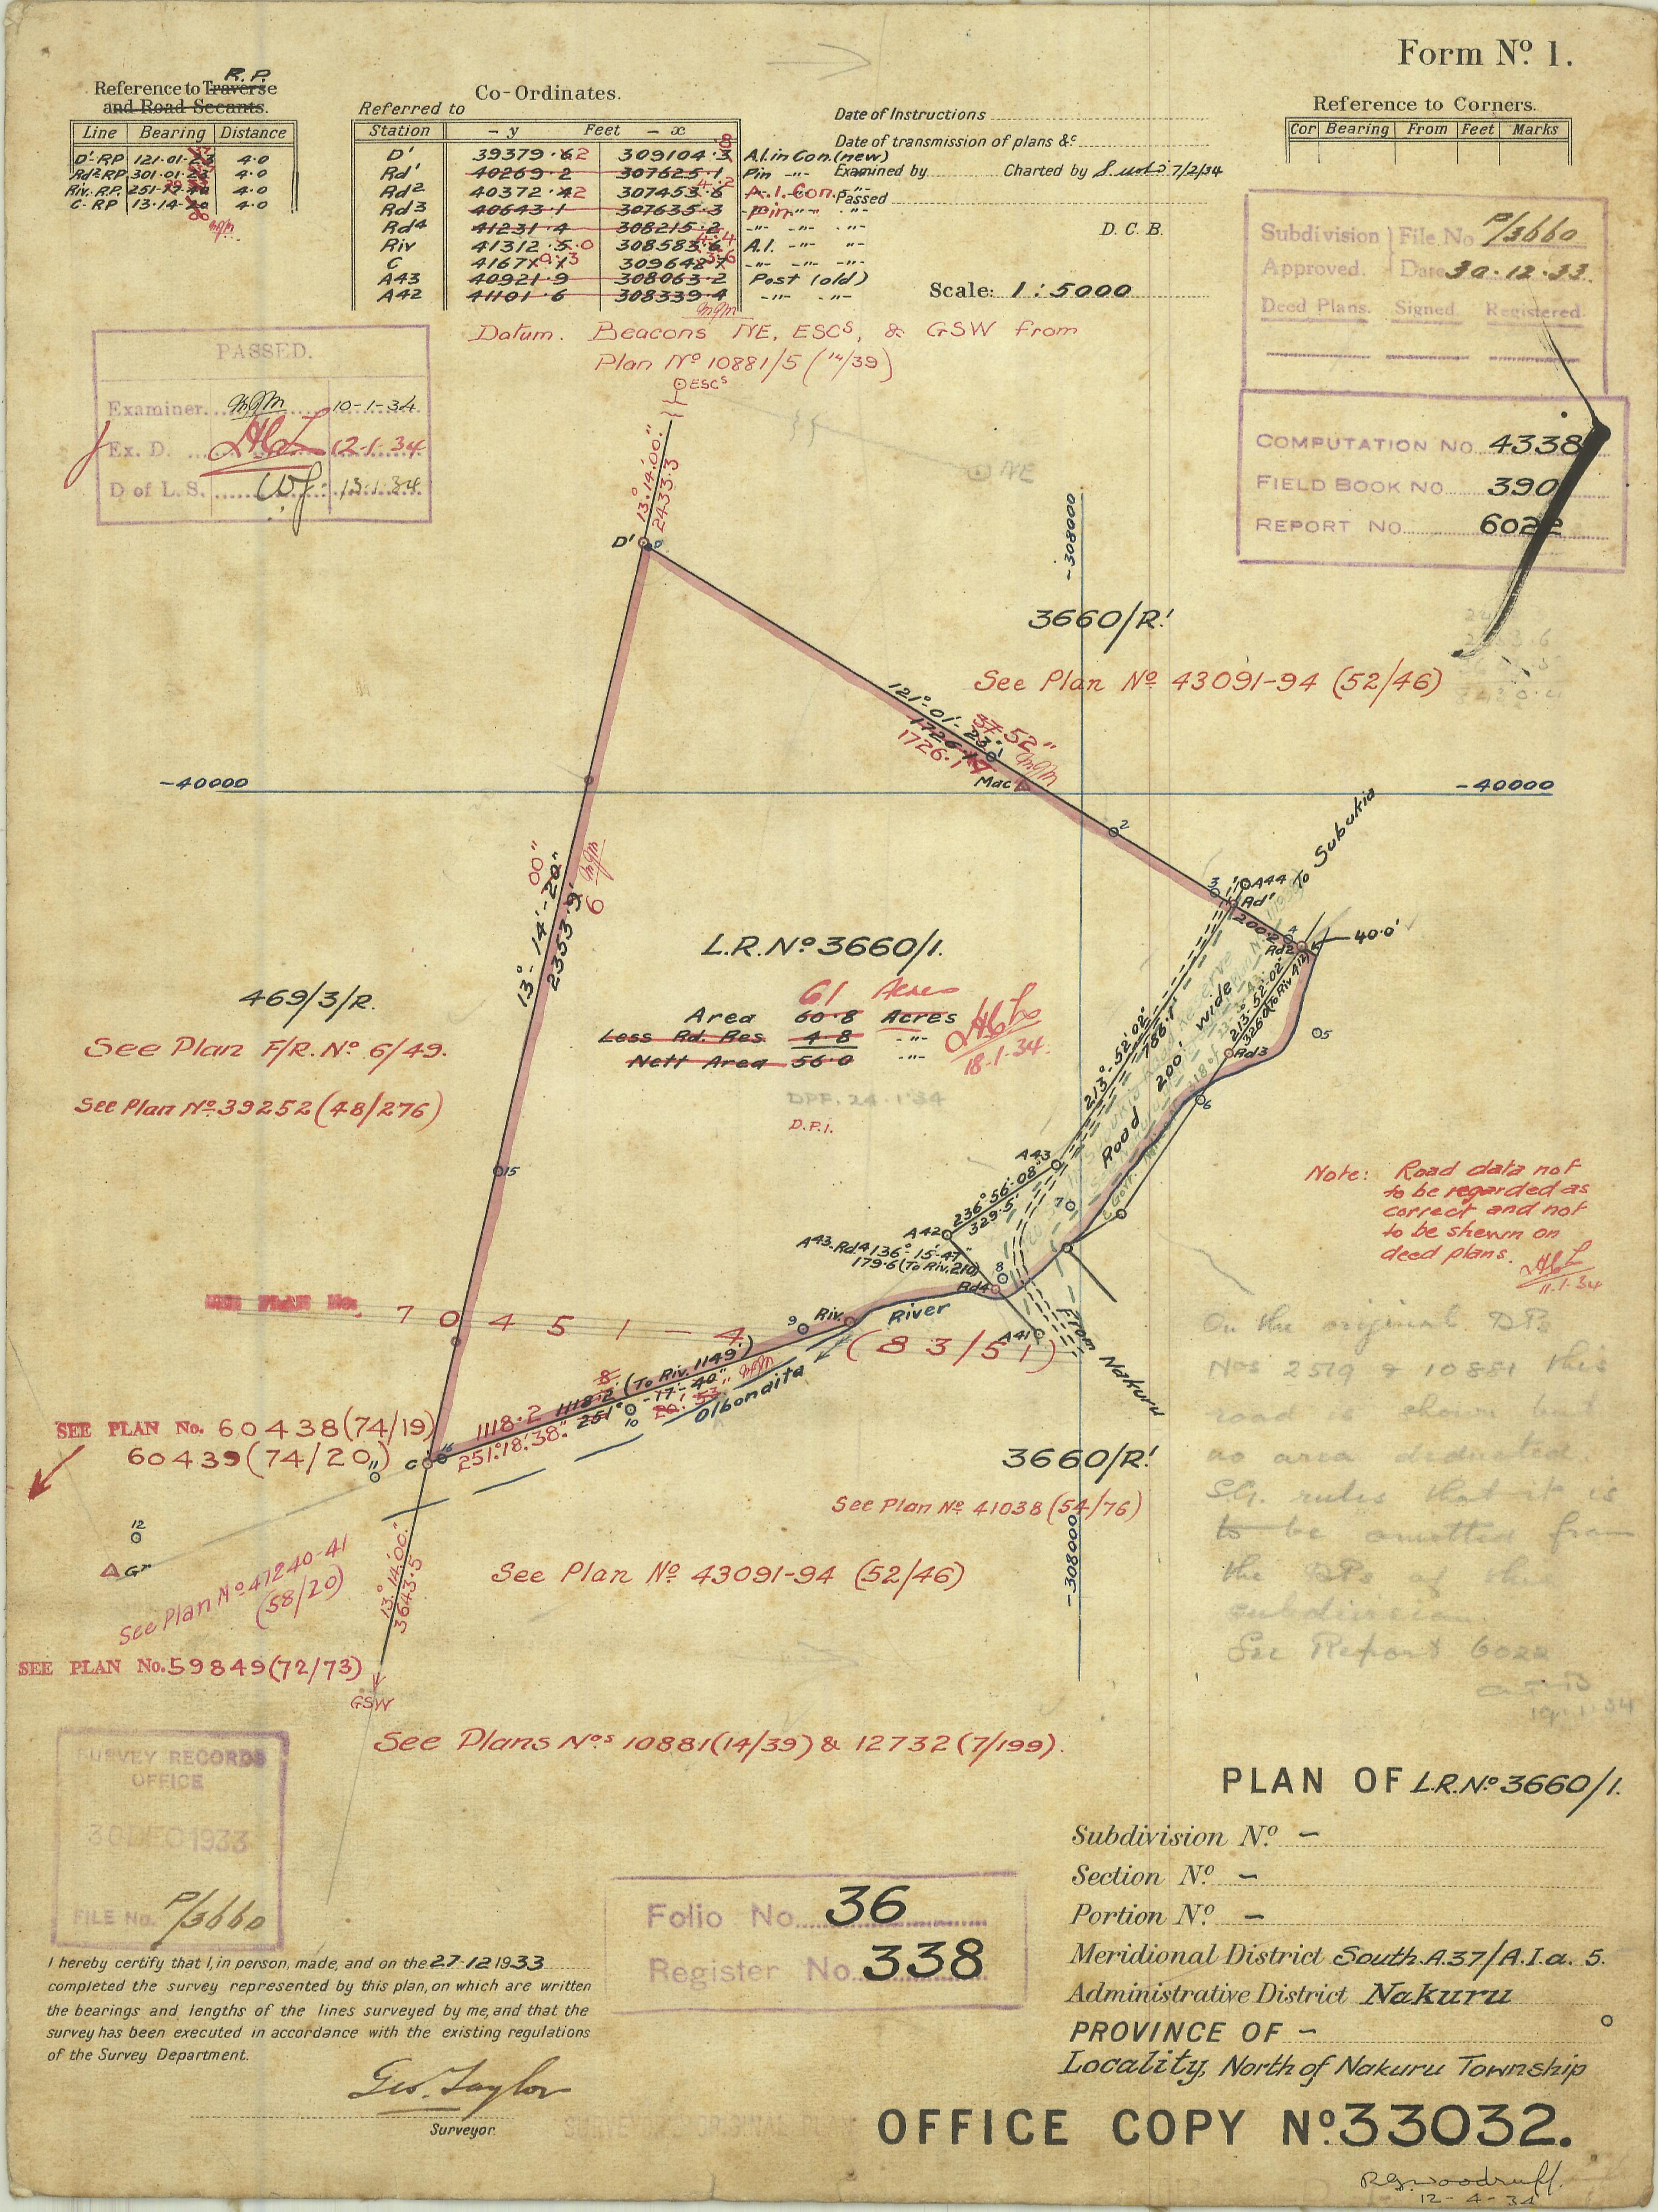 Form Nº 1.
Reference to Traverse R.P.
and Road Secants.
Line Bearing Distance
D'-RP 121·01·23 4·0
Rd²RP 301·01·23 4·0
Riv. RP. 251· 4·0
C-RP 13·14· 4·0
Co-Ordinates.
Referred to
Station - y Feet - x
D' 39379·62 309104·3 A.I. in Con. (new)
Rd' 40269·2 307625·1 Pin -"-
Rd² 40372·42 307453·6 A.I. Con.
Rd³ 40643·1 307635·3 Pin -"-
Rd⁴ 41231·4 308215·2 -"- -"-
Riv 41312·5·0 308583·6 A.I. -"- -"-
C 4167 309648 -"- -"-
A43 40921·9 308063·2 Post (old)
A42 41101·6 308339·4 -"- -"-
Date of Instructions
Date of transmission of plans &c
Examined by Charted by 7/2/34
Passed
D. C. B.
Scale: 1:5000
Reference to Corners.
Cor Bearing From Feet Marks
Subdivision Approved. File No P/3660
Date 30·12·33.
Deed Plans. Signed. Registered.
COMPUTATION NO. 4338
FIELD BOOK NO. 390
REPORT NO. 6022
PASSED.
Examiner. MGM 10-1-34.
Ex. D. 12-1-34
D of L.S. 13·1·34
Datum. Beacons NE, ESCˢ, & GSW from
Plan Nº 10881/5 (14/39)
ESCˢ
NE
13°·14'·00"
2433·3
D'
D
-308000
3660/R!
See Plan Nº 43091-94 (52/46)
121°-01'-23"
37·52"
1726·1
MGM
Mac
-40000
-40000
2
3
A44
To Subukia
Rd'
200·2
4
Rd2
40·0'
13°-14'-20"
00"
2353·9'
6
MGM
L.R. Nº 3660/1.
61 Acres
Area 60·8 Acres
Less Rd. Res. 4·8 -"-
Nett Area 56·0 -"-
18·1·34.
DPF. 24·1·34
D.P.1.
469/3/R.
See Plan F/R. Nº 6/49.
See Plan Nº 39252 (48/276)
213°-52'-02"
786·1
Road 200' wide
213°-52'-02"
326·0 (To Riv 412)
Rd3
5
6
7
A43
236°56'·08"
329·5'
A42
A43-Rd4 136°-15'-47"
179·6 (To Riv. 210)
8
Rd4
Note: Road data not
to be regarded as
correct and not
to be shewn on
deed plans.
11·1·34
SEE PLAN No. 70451-4
(83/51)
9
Riv.
River
A41
From Nakuru
15
8
1118·2 1118·2 (To Riv. 1149')
251°-17'-40"
MGM
251°18'·38"
10
Olbondita
SEE PLAN No. 60438(74/19)
60439(74/20)
C
16
11
12
Gr
3660/R!
See Plan Nº 41038 (54/76)
-308000
See Plan Nº 43091-94 (52/46)
See Plan Nº 41240-41
(58/20)
13°·14'·00"
3643·5
SEE PLAN No. 59849(72/73)
GSW
On the original DPs
Nos 2519 & 10881 this
road is shown but
no area deducted.
SG. rules that it is
to be omitted from
the DPs of this
subdivision.
See Report 6022
19·1·34
See Plans Nos 10881(14/39) & 12732(7/199).
SURVEY RECORDS
OFFICE
30 DEC 1933
FILE No. P/3660
Folio No. 36
Register No. 338
PLAN OF L.R. Nº 3660/1.
Subdivision Nº -
Section Nº -
Portion Nº -
Meridional District South.A.37/A.I.a. 5.
Administrative District Nakuru
PROVINCE OF -
Locality, North of Nakuru Township
I hereby certify that I, in person, made, and on the 27·12 1933
completed the survey represented by this plan, on which are written
the bearings and lengths of the lines surveyed by me, and that the
survey has been executed in accordance with the existing regulations
of the Survey Department.
Geo. Taylor
Surveyor.
OFFICE COPY Nº 33032.
R.G. Woodruff.
12-4-34